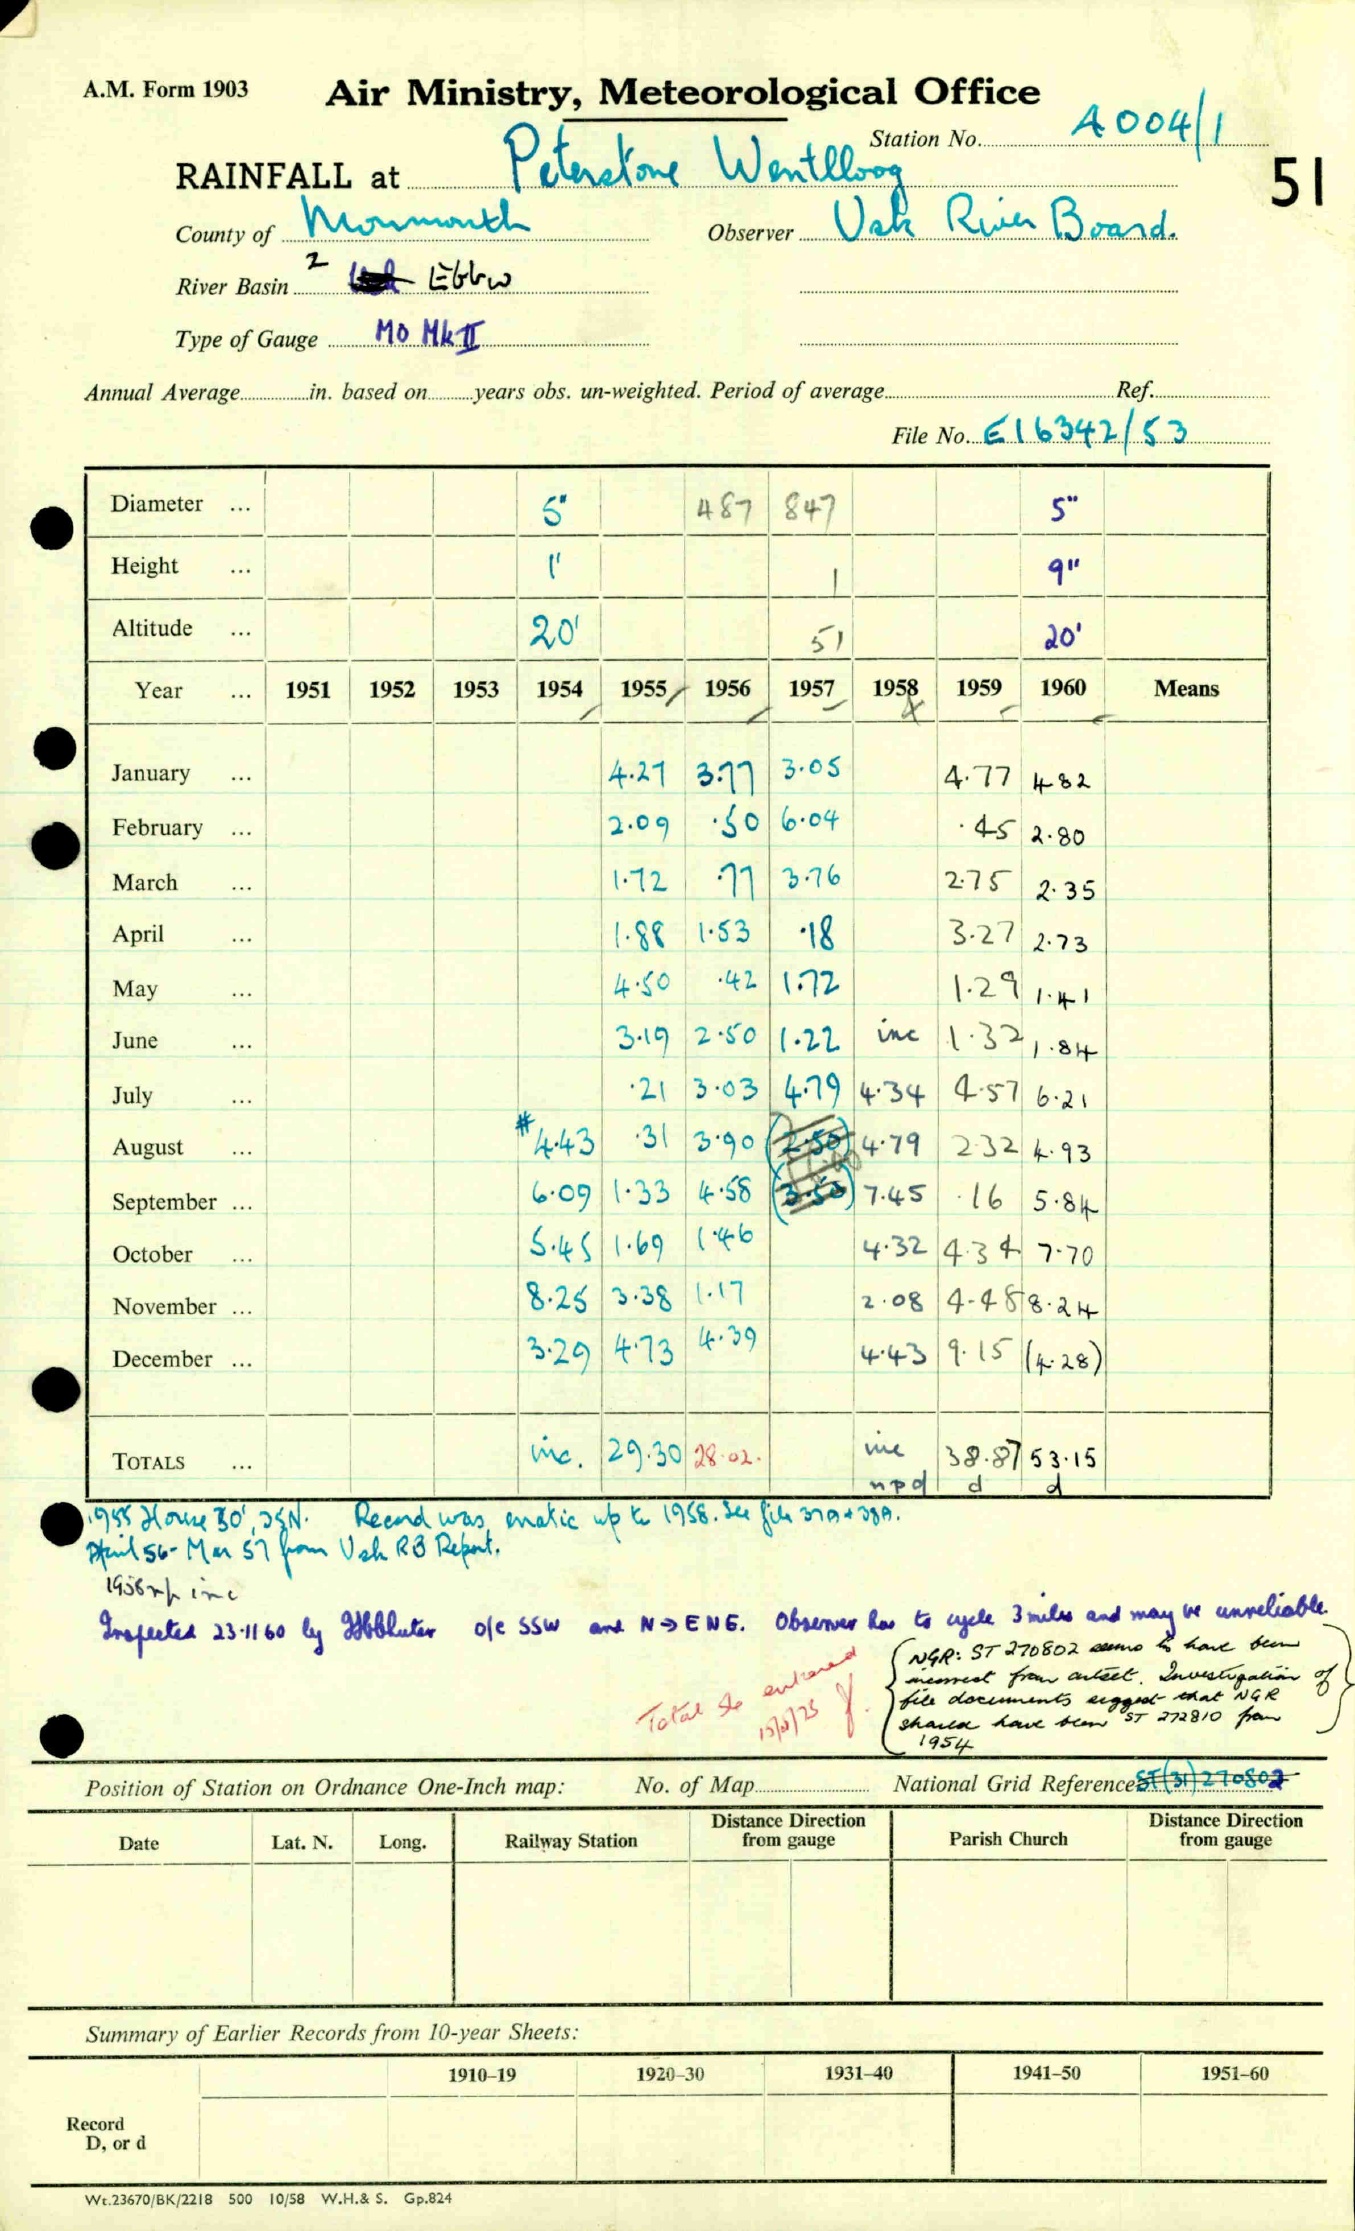 A.M. Form 1903
Air Ministry, Meteorological Office
Station No. A004/1
51
RAINFALL at Peterstone Wentlloog
County of Monmouth Observer Usk River Board.
River Basin 2 Ebbw
Type of Gauge MO Mk II
Annual Average in. based on years obs. un-weighted. Period of average Ref.
File No. E16342/53
Diameter ... 5" 487 847 5"
Height ... 1' 1 9"
Altitude ... 20' 51 20'
Year ... 1951 1952 1953 1954 1955 1956 1957 1958 1959 1960 Means
January ... 4.27 3.77 3.05 4.77 4.82
February ... 2.09 .50 6.04 .45 2.80
March ... 1.72 .77 3.76 2.75 2.35
April ... 1.88 1.53 .18 3.27 2.73
May ... 4.50 .42 1.72 1.29 1.41
June ... 3.19 2.50 1.22 inc 1.32 1.84
July ... .21 3.03 4.79 4.34 4.57 6.21
August ... # 4.43 .31 3.90 (2.50) 4.79 2.32 4.93
September ... 6.09 1.33 4.58 (3.50) 7.45 .16 5.84
October ... 5.45 1.69 1.46 4.32 4.34 7.70
November ... 8.25 3.38 1.17 2.08 4.48 8.24
December ... 3.29 4.73 4.39 4.43 9.15 (4.28)
TOTALS ... inc. 29.30 28.02. inc 38.87 53.15
npd d d
1955 House 30', 25N. Record was erratic up to 1958. See file 37A + 38A.
April 56 - Mar 57 from Usk RB Report.
1958 inc
Inspected 23.11.60 by o/c SSW and N→ENE. Observer has to cycle 3 miles and may be unreliable.
Total so entered
(NGR: ST 270802 seems to have been
incorrect from outset. Investigation of
file documents suggest that NGR
should have been ST 272810 from
1954
Position of Station on Ordnance One-Inch map: No. of Map National Grid Reference ST(31)270802
Date Lat. N. Long. Railway Station Distance Direction from gauge Parish Church Distance Direction from gauge
Summary of Earlier Records from 10-year Sheets:
1910–19 1920–30 1931–40 1941–50 1951–60
Record
D, or d
Wt.23670/BK/2218 500 10/58 W.H.& S. Gp.824